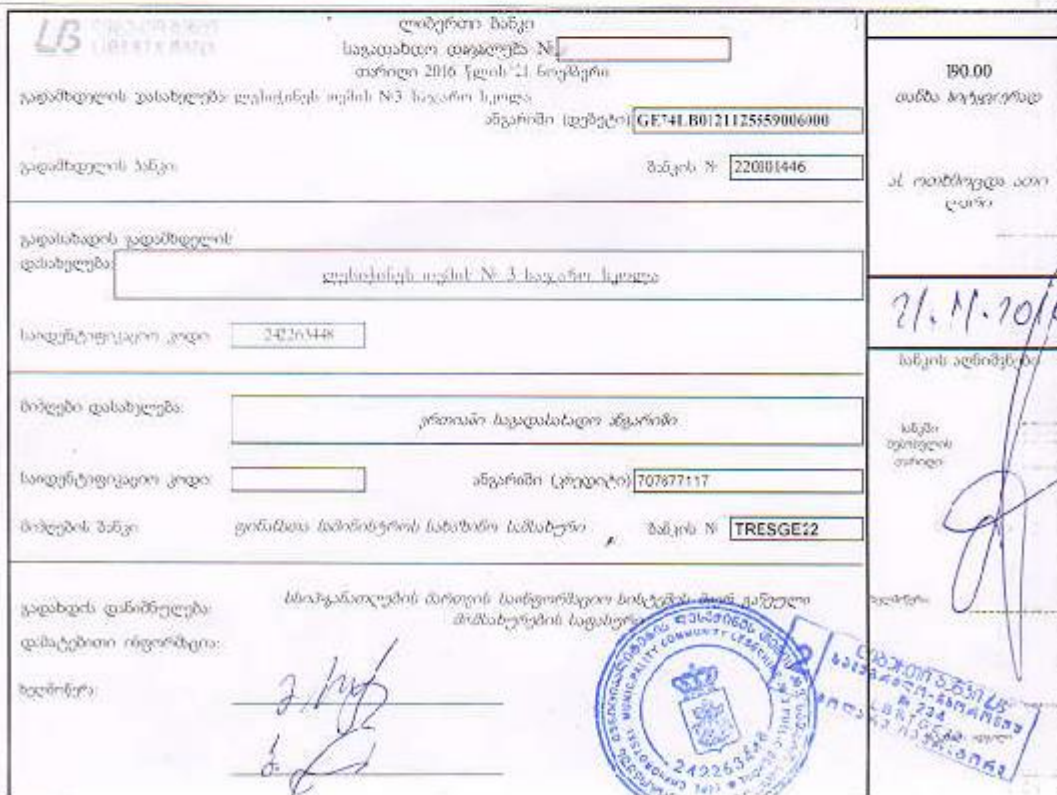 LB LIBERTY BANK
ლიბერთი ბანკი
საგადახდო დავალება №
თარიღი 2016 წლის 21 ნოემბერი
გადამხდელის დასახელება: ლესიჭინეს თემის №3 საჯარო სკოლა
ანგარიში (დებეტი) GE74LB0121125559006000
გადამხდელის ბანკი: ბანკის № 220101446
გადასახადის გადამხდელის
დასახელება:
ლესიჭინეს თემის № 3 საჯარო სკოლა
საიდენტიფიკაციო კოდი: 242263448
მიმღები დასახელება: ერთიანი საგადასახადო ანგარიში
საიდენტიფიკაციო კოდი: ანგარიში (კრედიტი) 707677117
მიმღების ბანკი: ფინანსთა სამინისტროს სახაზინო სამსახური ბანკის № TRESGE22
გადახდის დანიშნულება: სსიპ განათლების მართვის საინფორმაციო სისტემის მიერ გაწეული
მომსახურების საფასური
დამატებითი ინფორმაცია:
ხელმოწერა:
190.00
თანხა სიტყვიერად
ას ოთხმოცდა ათი
ლარი
21.11.2016
ბანკის აღნიშვნები
ბანკში
შემოსვლის
თარიღი:
ხელმოწერა
MUNICIPALITY COMMUNITY
242263448
ლიბერთი ბანკი LB
№ 234